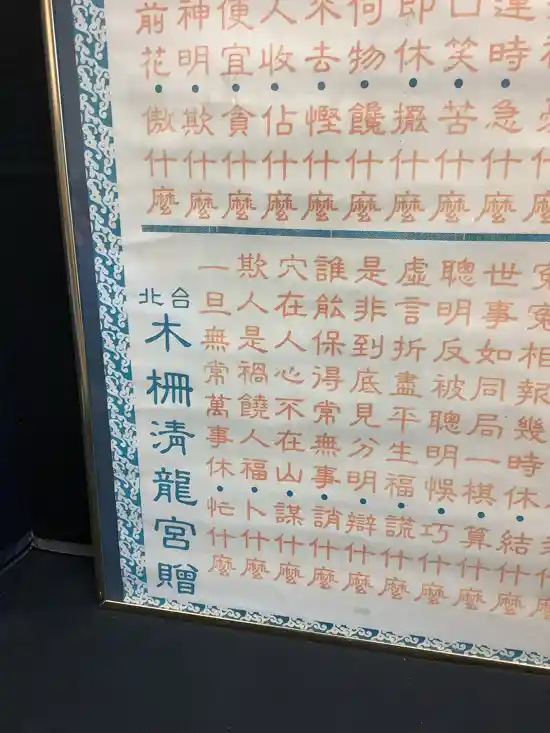 運時•急什麼
口笑•苦什麼
即休•擺什麼
何物•饞什麼
來去•慳什麼
人收•佔什麼
便宜•貪什麼
神明•欺什麼
前花•傲什麼
冤冤相報幾時休•結什麼
世事如同局一棋•算什麼
聰明反被聰明悞•巧什麼
虛言折盡平生福•謊什麼
是非到底見分明•辯什麼
誰能保得常無事•誚什麼
穴在人心不在山•謀什麼
欺人是禍饒人福•卜什麼
一旦無常萬事休•忙什麼
台北
木柵清龍宮贈